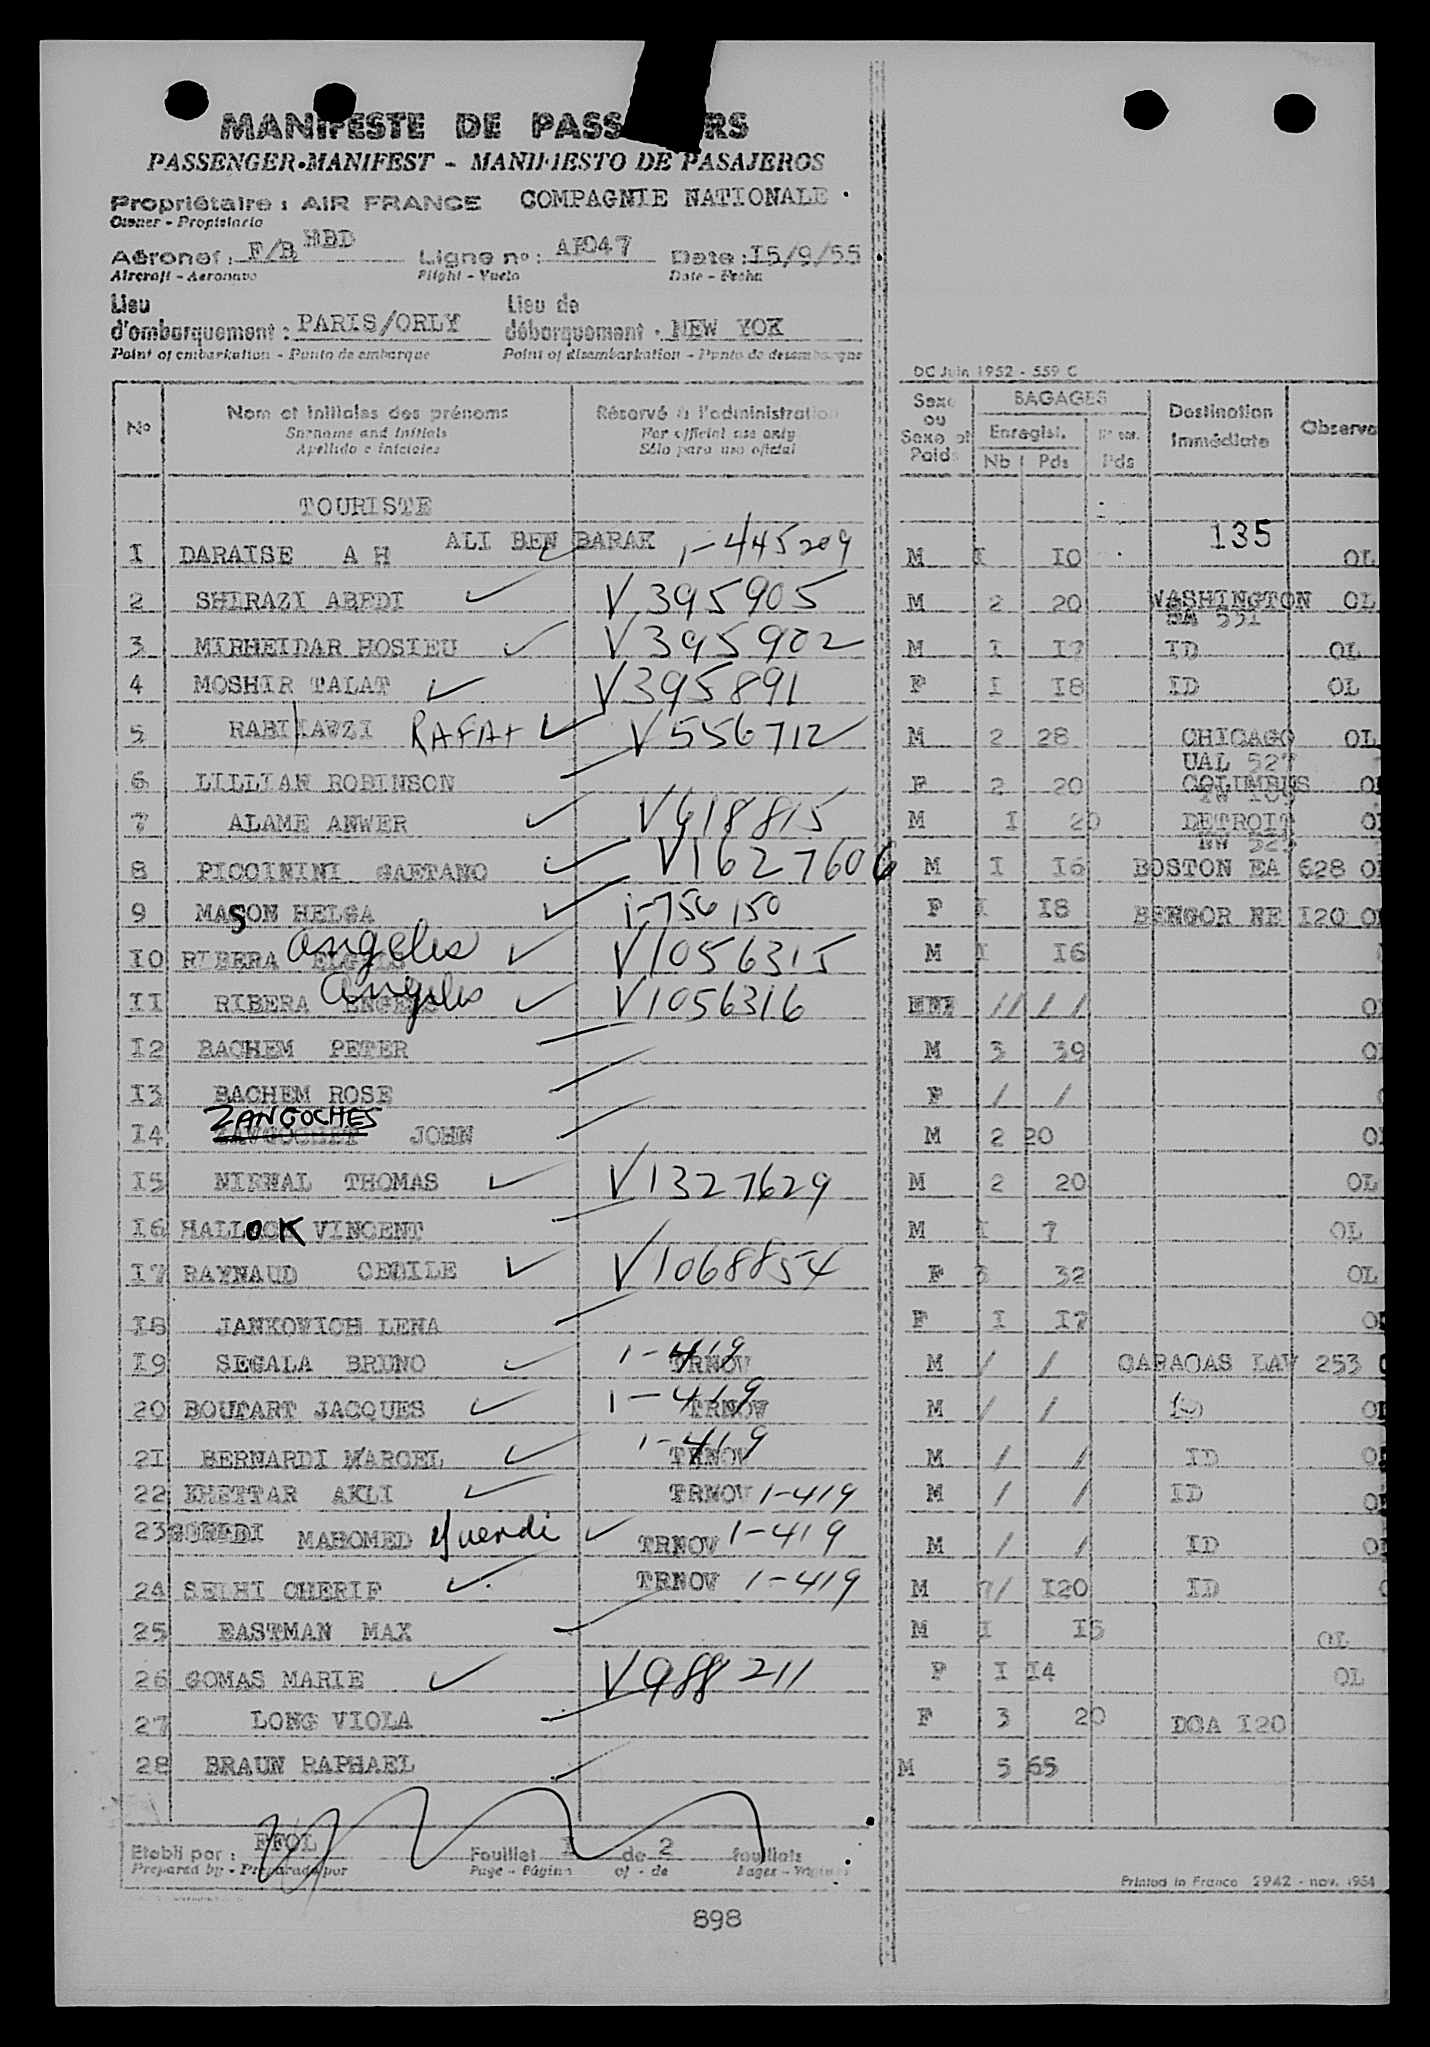 MANIFESTE DE PASS RS
PASSENGER-MANIFEST - MANIFIESTO DE PASAJEROS
Propriétaire : AIR FRANCE COMPAGNIE NATIONALE
Owner - Propietario
Aéronef : F/B HBD Ligne no : AF047 Date : I5/9/55
Aircraft - Aeronave Flight - Vuelo Date - Fecha
Lieu d'embarquement : PARIS/ORLY Lieu de débarquement : NEW YOK
Point of embarkation - Punto de embarque Point of disembarkation - Punto de desembarque
DC Juin 1952 - 559 C
No Nom et initiales des prénoms Réservé à l'administration Sexe ou Sexe et Poids BAGAGES Destination Immédiate Observa
Surname and initials For official use only Enregist.
Apellido e iniciales Sólo para uso oficial Nb Pds Pds
TOURISTE
135
I DARAISE A H ALI BEN BARAK 1-445209 M I IO OL
2 SHIRAZI ABEDI V395905 M 2 20 WASHINGTON OL
3 MIRHEIDAR HOSIEU V395902 M I I7 ID OL
4 MOSHIR TALAT V395891 F I I8 ID OL
5 RABI HAWZI RAFAT V556712 M 2 28 CHICAGO OL
UAL 527
6 LILLIAN ROBINSON F 2 20 COLUMBUS
7 ALAME ANWER V618815 M I 20 DETROIT
8 PICCININI GAETANO V1627606 M I I6 BOSTON EA 628
9 MASON HELGA 1-756150 F I I8 BENGOR NE I20
IO RIBERA angeles V1056315 M I I6
II RIBERA angeles V1056316 // / /
I2 BACHEM PETER M 3 39
I3 BACHEM ROSE F / /
I4 ZANGOCHES JOHN M 2 20
I5 NIEWAL THOMAS V1327629 M 2 20 OL
I6 HALLOCK VINCENT M I 7 OL
I7 RAYNAUD CECILE V1068854 F 3 32 OL
I8 JANKOVICH LENA F I I7
I9 SEGALA BRUNO 1-419 TRNOV M / / CARACAS LAV 253
20 BOUTART JACQUES 1-419 TRNOV M / / ID
2I BERNARDI MARCEL 1-419 TRNOV M / / ID
22 KHETTAR AKLI TRNOV 1-419 M / / ID
23 MAHOMED guendi TRNOV 1-419 M / / ID
24 SELHI CHERIF TRNOV 1-419 M 7/ I20 ID
25 EASTMAN MAX M I I5 OL
26 GOMAS MARIE V988211 F I I4 OL
27 LONG VIOLA F 3 20 DCA I20
28 BRAUN RAPHAEL M 5 65
Etabli par : FFOL Feuillet I de 2 feuillets
Prepared by - Preparado por Page - Página of - de Pages - Páginas
Printed in France 2942 - nov. 1954
898